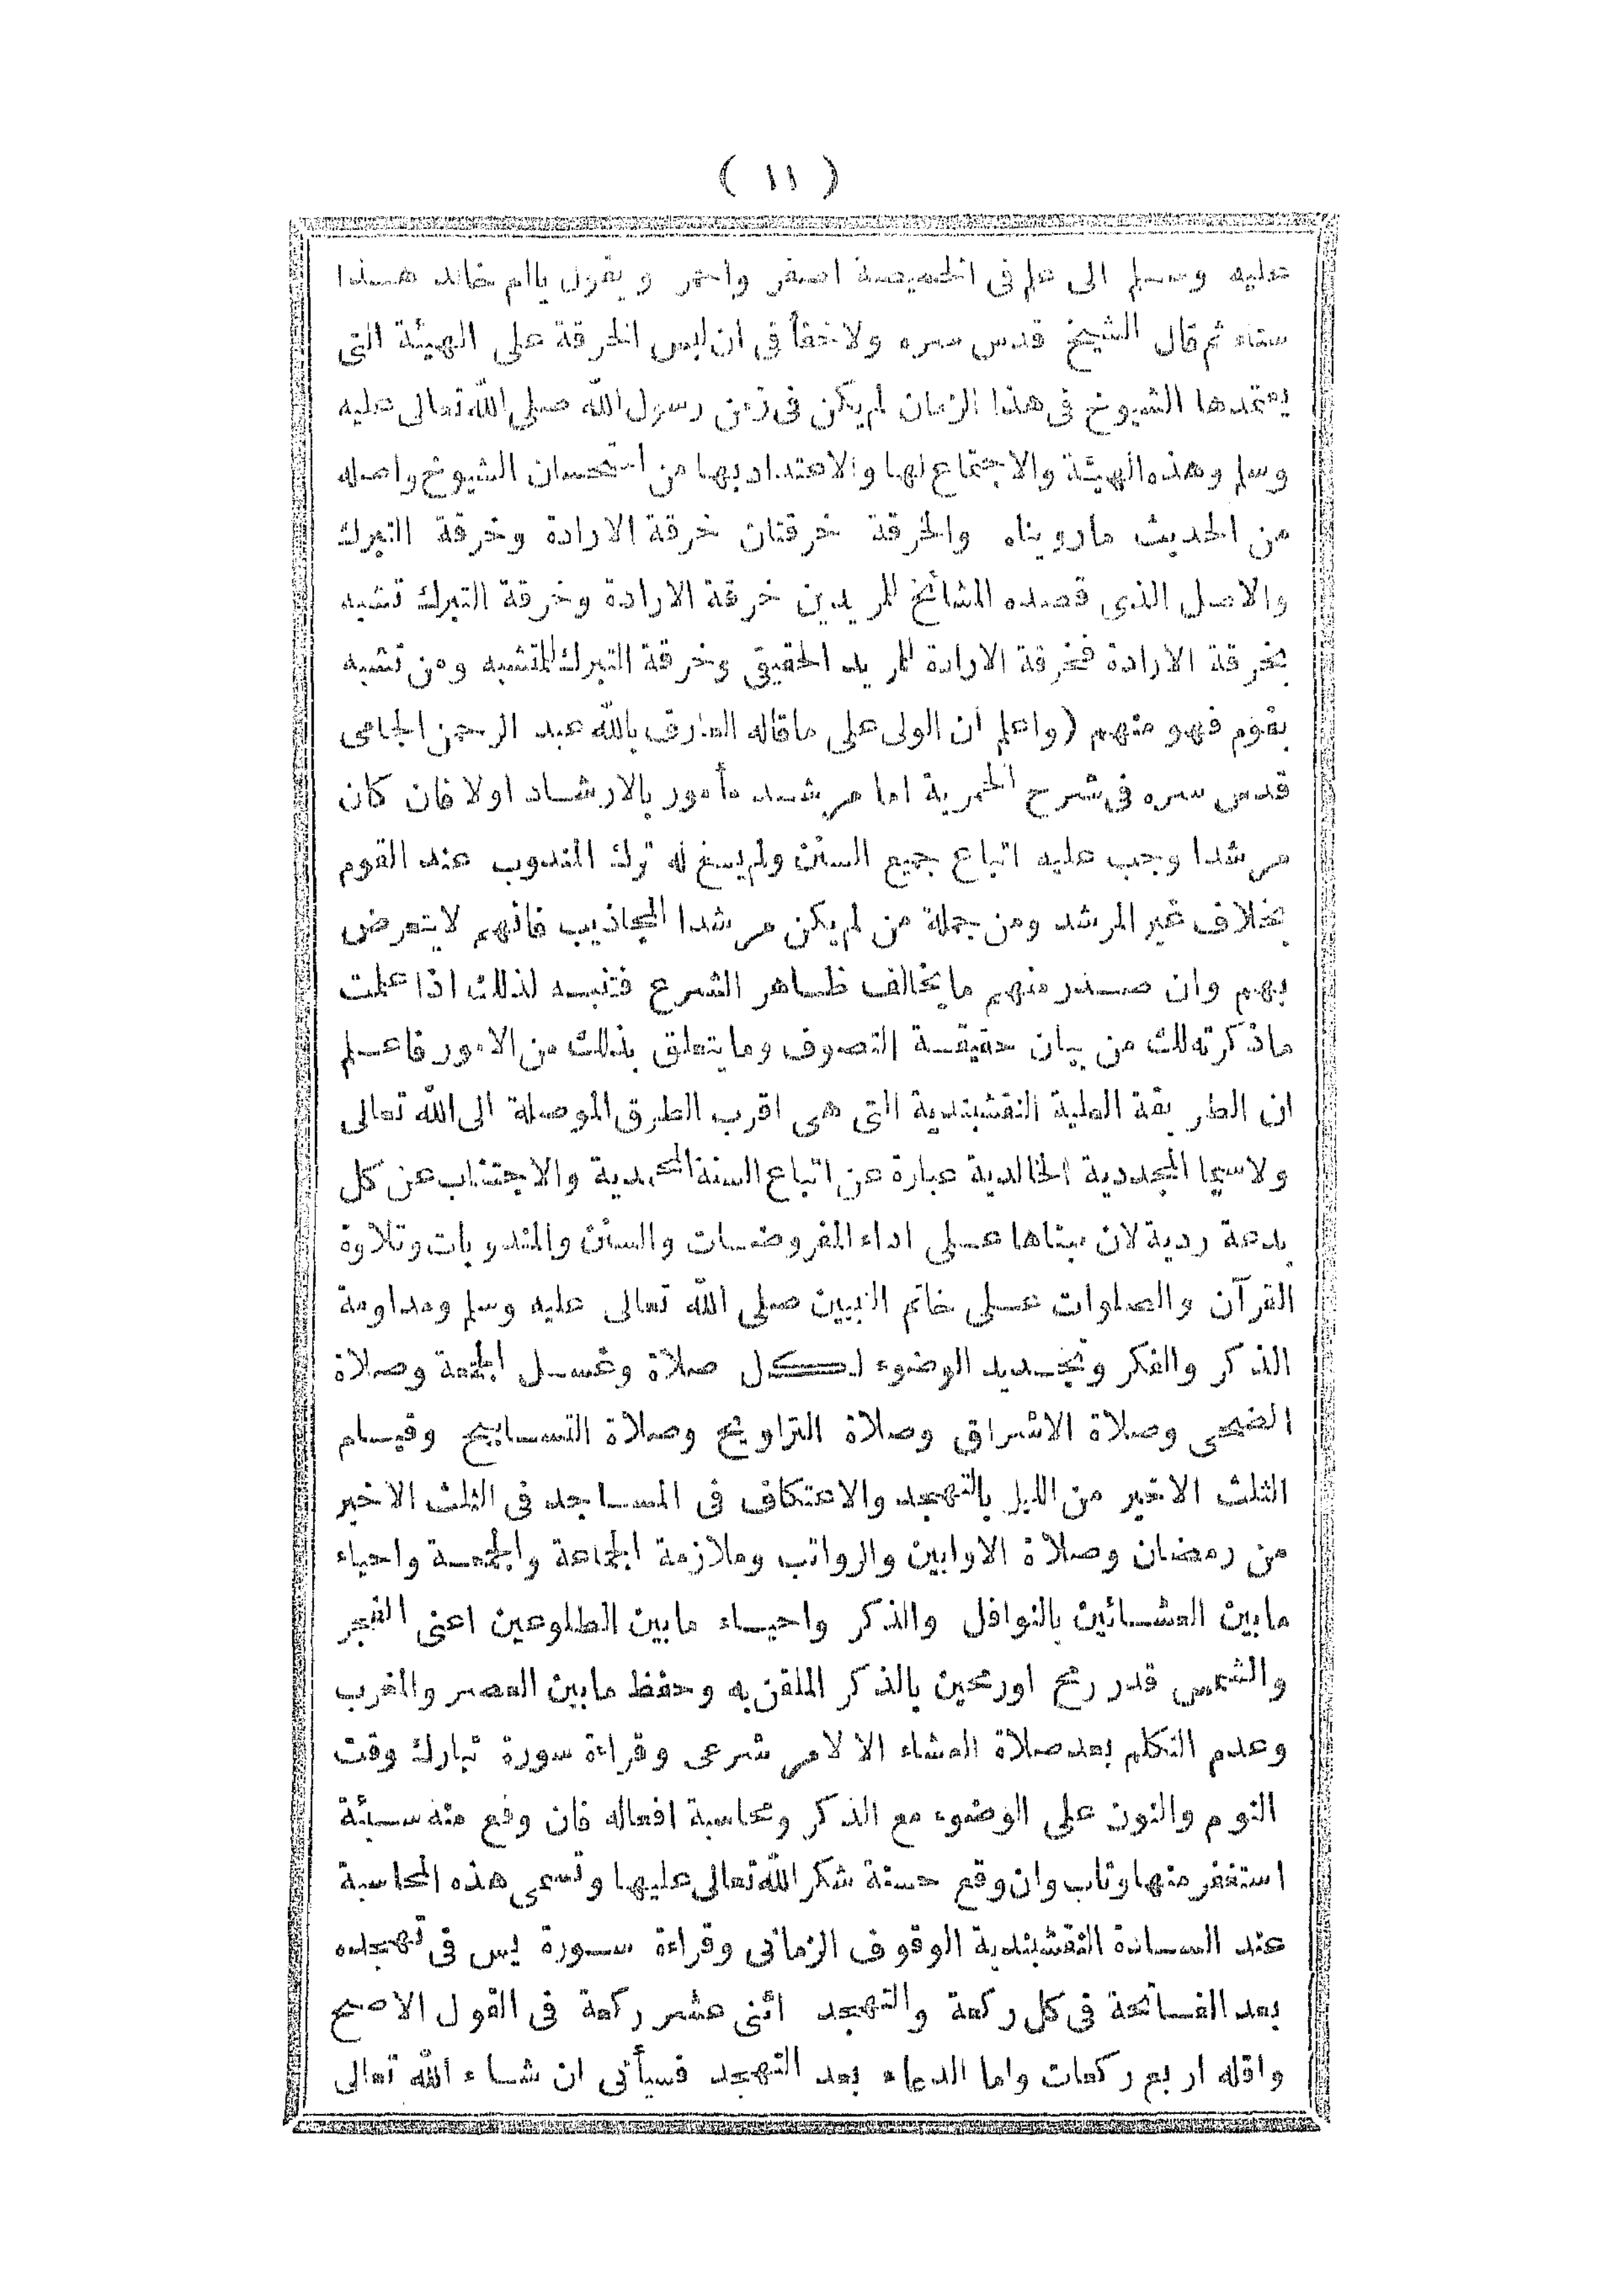 ( ١١ )
عليه وسلم الى علم فى الخميصة اصفر واحمر ويقول ياام خالد هذا
سناه ثم قال الشيخ قدس سره ولاخفأ فى ان لبس الخرقة على الهيئة التى
يعتمدها الشيوخ فى هذا الزمان لم يكن فى زمن رسول الله صلى الله تعالى عليه
وسلم وهذه الهيئة والاجتماع لها والاعتداد بها من استحسان الشيوخ واصله
من الحديث مارويناه والخرقة خرقتان خرقة الارادة وخرقة التبرك
والاصل الذى قصده المشائخ للمريدين خرقة الارادة وخرقة التبرك تشبه
بخرقة الارادة فخرقة الارادة للمريد الحقيقى وخرقة التبرك للمتشبه ومن تشبه
بقوم فهو منهم (واعلم ان الولى على ماقاله العارف بالله عبد الرحمن الجامى
قدس سره فى شرح الخمرية اما مرشد مأمور بالارشاد اولا فان كان
مرشدا وجب عليه اتباع جميع السنن ولم يسغ له ترك المندوب عند القوم
بخلاف غير المرشد ومن جملة من لم يكن مرشدا المجاذيب فانهم لايتعرض
بهم وان صدر منهم مايخالف ظاهر الشرع فتنبه لذلك اذا علمت
ماذكرته لك من بيان حقيقة التصوف ومايتعلق بذلك من الامور فاعلم
ان الطريقة العلية النقشبندية التى هى اقرب الطرق الموصلة الى الله تعالى
ولاسيما المجددية الخالدية عبارة عن اتباع السنة المحمدية والاجتناب عن كل
بدعة ردية لان مبناها على اداء المفروضات والسنن والمندوبات وتلاوة
القرآن والصلوات على خاتم النبيين صلى الله تعالى عليه وسلم ومداومة
الذكر والفكر وتجديد الوضوء لكل صلاة وغسل الجمعة وصلاة
الضحى وصلاة الاشراق وصلاة التراويح وصلاة التسابيح وقيام
الثلث الاخير من الليل بالتهجد والاعتكاف فى المساجد فى الثلث الاخير
من رمضان وصلاة الاوابين والرواتب وملازمة الجماعة والجمعة واحياء
مابين العشائين بالنوافل والذكر واحياء مابين الطلوعين اعنى الفجر
والشمس قدر رمح اورمحين بالذكر الملقن به وحفظ مابين العصر والمغرب
وعدم التكلم بعد صلاة العشاء الا لامر شرعى وقراءة سورة تبارك وقت
النوم والنون على الوضوء مع الذكر ومحاسبة افعاله فان وقع منه سيئة
استغفر منها وتاب وان وقع حسنة شكر الله تعالى عليها وتسمى هذه المحاسبة
عند السادة النقشبندية الوقوف الزمانى وقراءة سورة يس فى تهجده
بعد الفاتحة فى كل ركعة والتهجد اثنى عشر ركعة فى القول الاصح
واقله اربع ركعات واما الدعاء بعد التهجد فسيأتى ان شاء الله تعالى